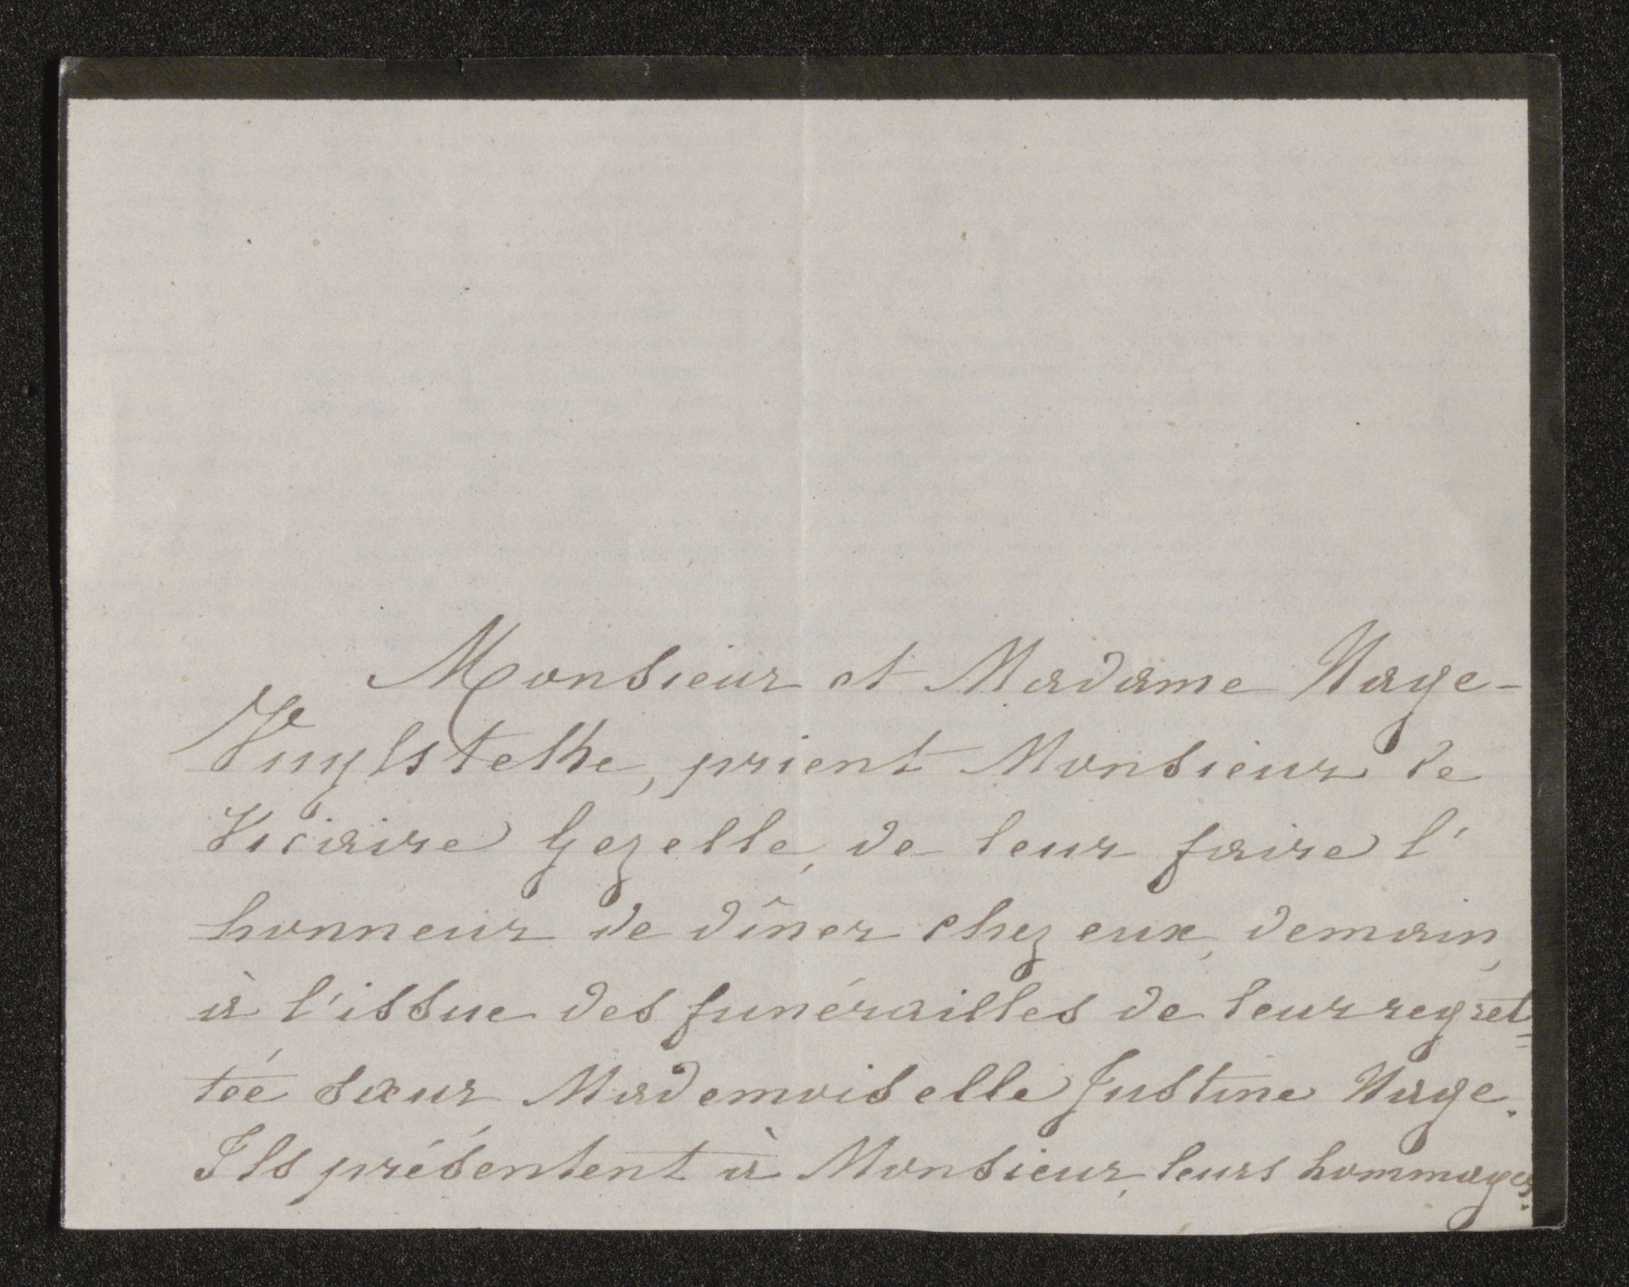 Monsieur et Madame Nage-
Vuylsteke, prient Monsieur le
Vicaire Gezelle, de leur faire l'
honneur de dîner chez eux, demain,
à l'issue des funérailles de leur regret=
tée sœur Mademoiselle Justine Nage.
Ils présentent à Monsieur, leurs hommages.